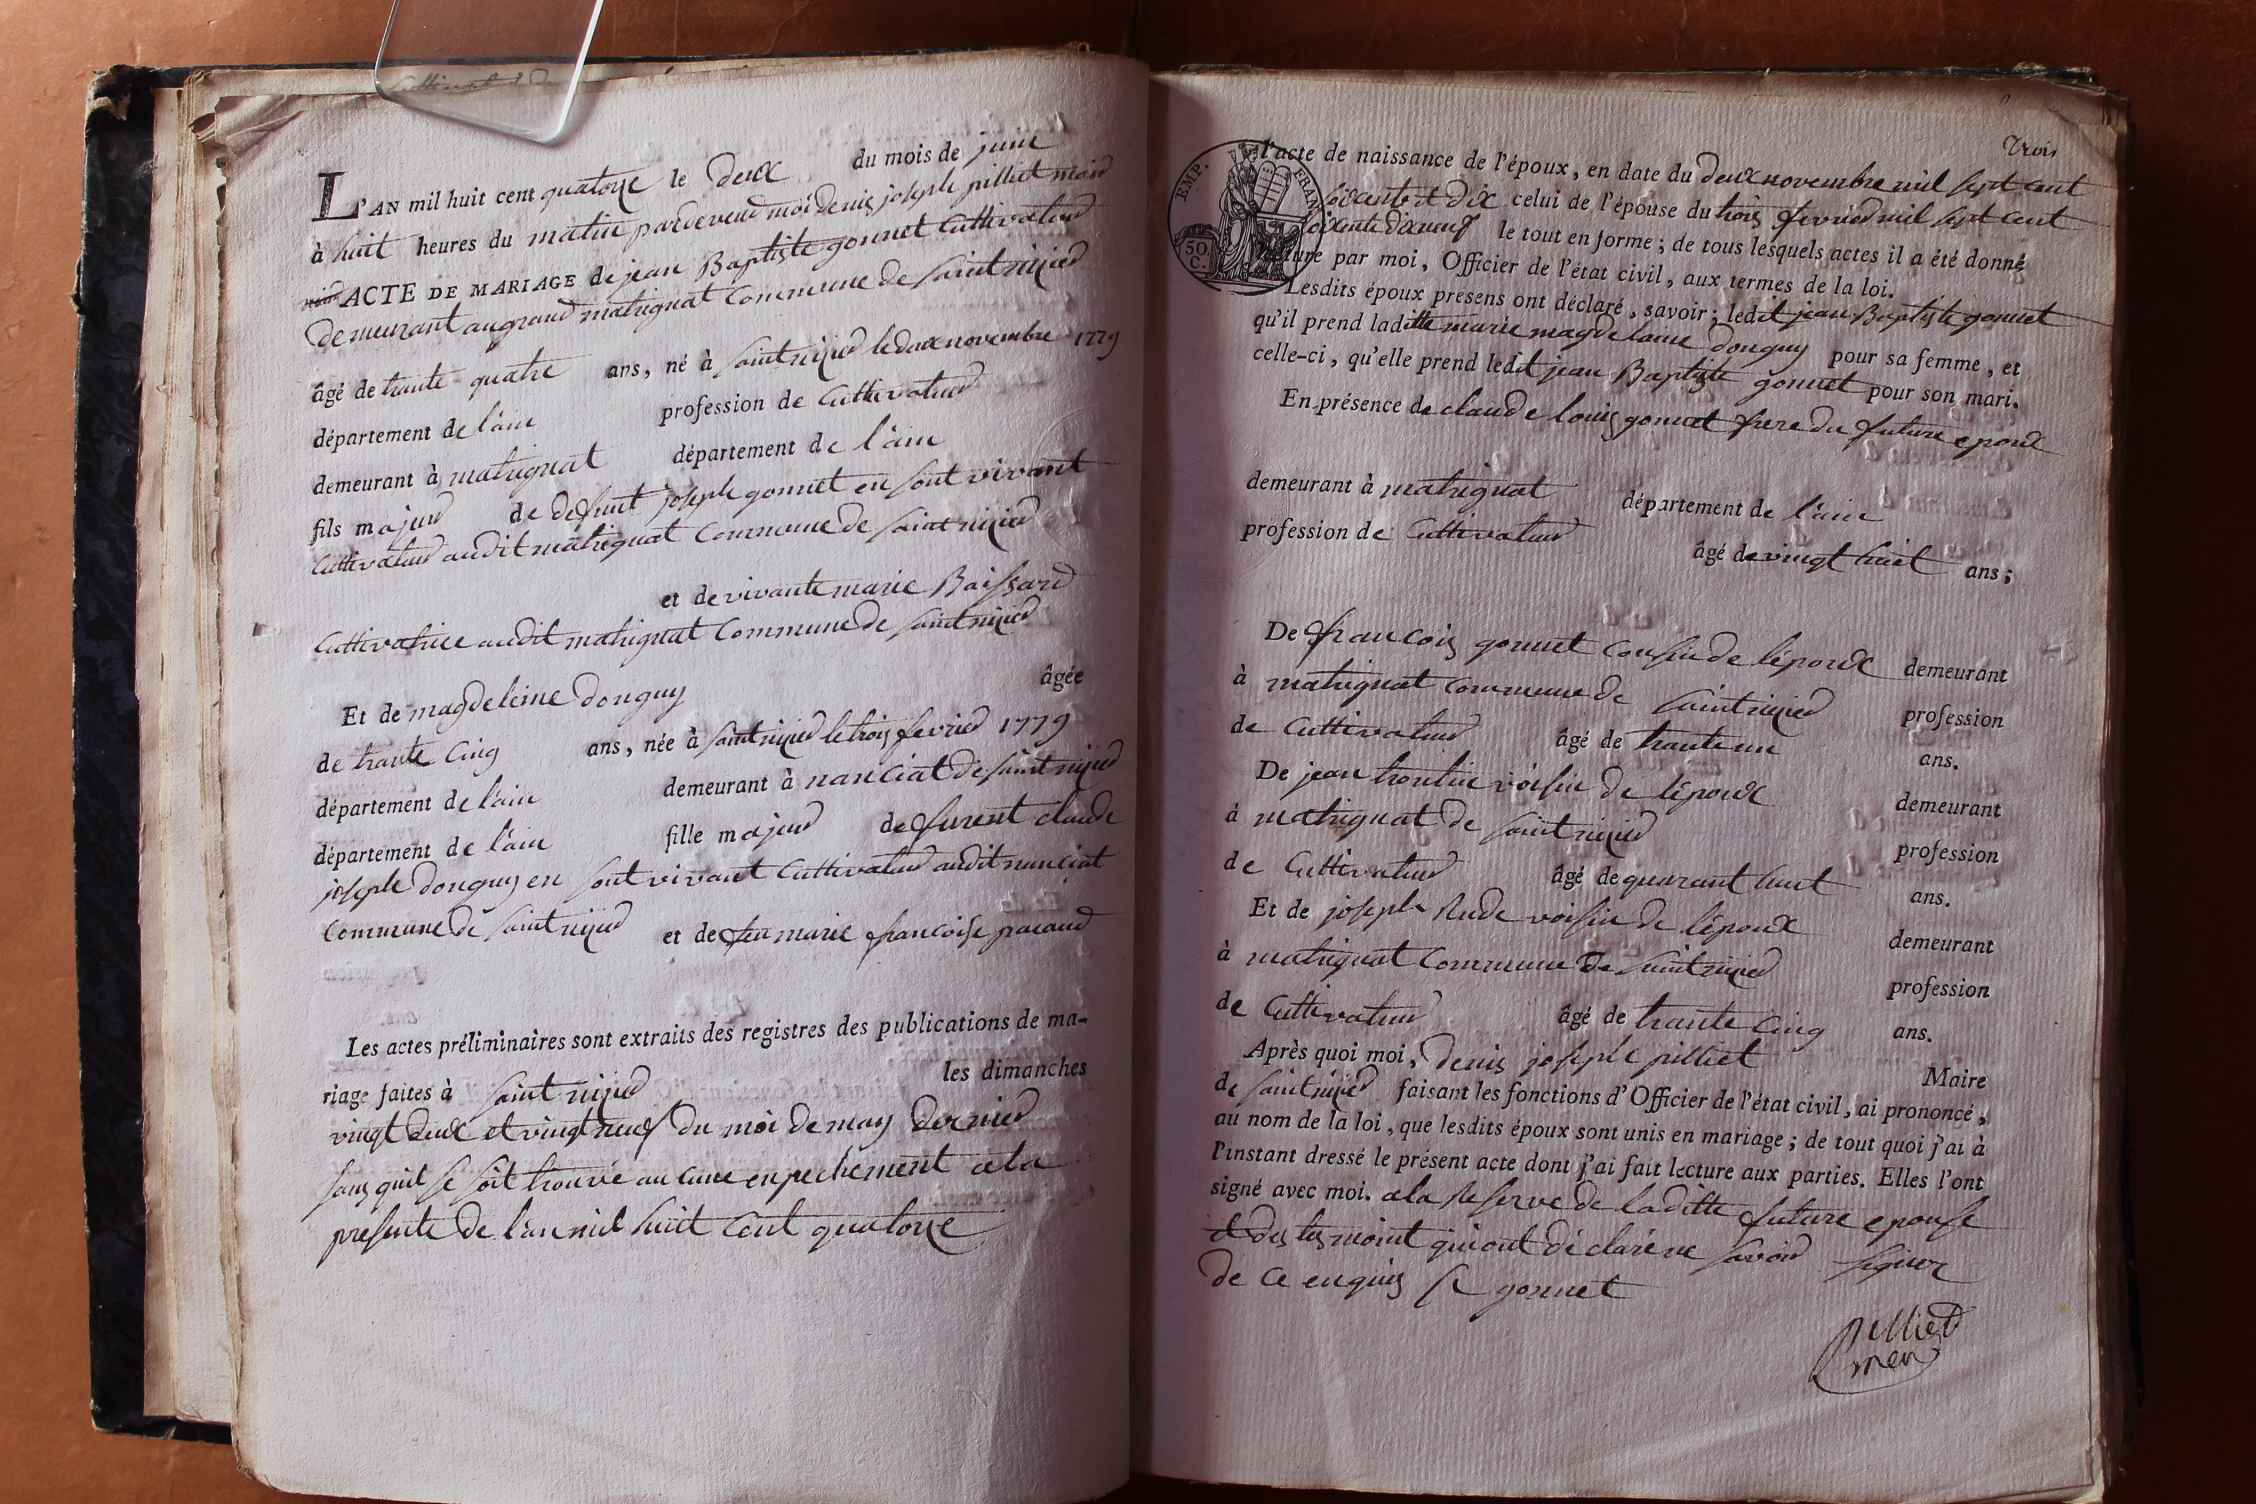 L'AN mil huit cent quatorze le deux du mois de juin
à huit heures du matin pardevend moi denis joseph pilliet maire
ACTE DE MARIAGE de jean Baptiste gonnet Cultivateur
demeurant au grand matrignat Commune de saint nizier
âgé de trante quatre ans, né à saint nizier le deux novembre 1779
département de l'ain profession de Cultivateur
demeurant à matrignat département de l'ain
fils majeur de defunt joseph gonnet en sont vivant
Cultivateur audit matrignat Commune de saint nizier
et de vivante marie Boissard
Cultivatrice audit matrignat Commune de saint nizier
Et de magdeleine donguy âgée
de trante cinq ans, née à saint nizier le trois fevrier 1779
département de l'ain demeurant à nanciat de saint nizier
département de l'ain fille majeur de furent claude
joseph donguy en sont vivant Cultivateur audit nanciat
Commune de saint nizier et de feu marie francoise pacaud
Les actes préliminaires sont extraits des registres des publications de ma-
riage faites à saint nizier les dimanches
vingt deux et vingt neuf du moi de may dernier
sans quil se soit trouvé au cune enpechement a la
presente de l'an mil huit cent quatorze
Trois
EMP. FRAN
50
C.
l'acte de naissance de l'époux, en date du deux novembre mil sept cent
soixante et dix celui de l'épouse du trois fevrier mil sept cent
soixante dix neuf le tout en forme; de tous lesquels actes il a été donné
lecture par moi, Officier de l'état civil, aux termes de la loi.
Lesdits époux présens ont déclaré, savoir; ledit jean Baptiste gonnet
qu'il prend laditte marie magdelaine donguy pour sa femme, et
celle-ci, qu'elle prend ledit jean Baptiste gonnet pour son mari.
En présence de claude louis gonnet frere du future epoux
demeurant à matrignat département de l'ain
profession de Cultivateur âgé de vingt huit ans;
De francois gonnet cousin de l'époux demeurant
à matrignat commune de saint nizier profession
de Cultivateur âgé de trante un ans.
De jean voisin de l'époux demeurant
à matrignat de saint nizier profession
de Cultivateur âgé de quarant huit ans.
Et de joseph Rude voisin de l'époux demeurant
à matrignat Commune de saint nizier profession
de Cultivateur âgé de trante cinq ans.
Après quoi moi, denis joseph pilliet Maire
de saint nizier faisant les fonctions d'Officier de l'état civil, ai prononcé,
au nom de la loi, que lesdits époux sont unis en mariage; de tout quoi j'ai à
l'instant dressé le présent acte dont j'ai fait lecture aux parties. Elles l'ont
signé avec moi. a la Reserve de laditte future epouse
et des tesmoint qui ont déclaré ne savoir signer
de ce enquis gonnet
pilliet